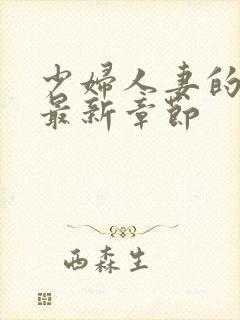 少婦人妻的
最新章節
西森生